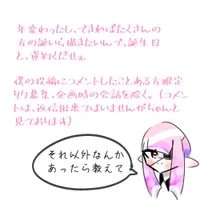 年変わったし、できればたくさんの
方の誕生日描きたいんで、誕生日
と、裏教えたせぇ
僕の投稿にコメントしたことある方限定
り募集、企画時の会話を除く。(コメン
トは、返信出来てはいませんがちゃんと
見ております)
それ以外なんか
あったら教えて